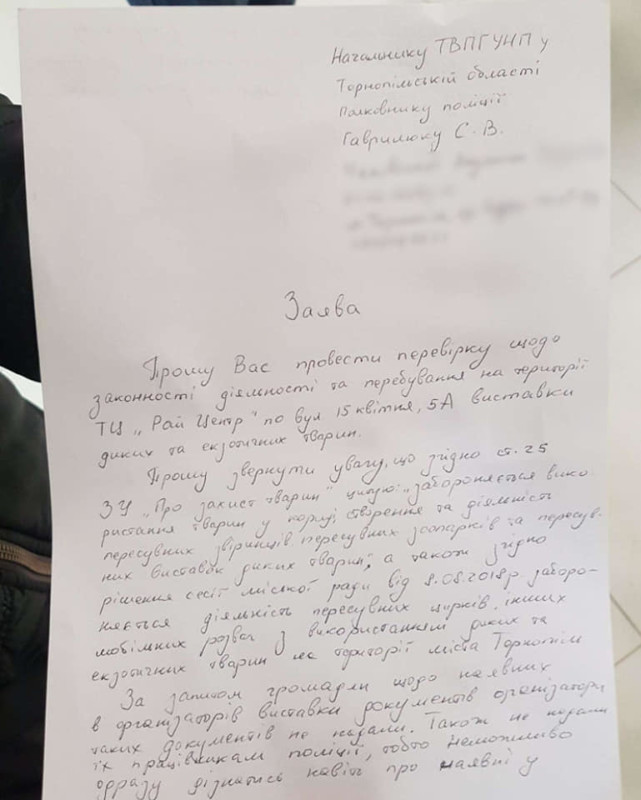 Начальнику ТВПГУНП у
Торнопільській області
Полковнику поліції
Гаврилюку С. В.
Заява
Прошу Вас провести перевірку щодо
законності діяльності та перебування на території
ТЦ „Рай Центр" по вул 15 квітня, 5А виставки
диких та екзотичних тварин.
Прошу звернути увагу, що згідно ст. 25
ЗУ „Про захист тварин" цитую: „забороняється вико-
ристання тварин у порції створення та діяльність
пересувних звіринців пересувних зоопарків та пересув-
них виставок диких тварин", а також згідно
рішення сесії міської ради від 8.08.2018р заборо-
няється діяльність пересувних цирків, інших
мобільних розваг з використанням диких та
екзотичних тварин на території міста Торнопіль
За запитом громадян щодо наявних
в організаторів виставки документів організатори
таких документів не надали. Також не надали
їх працівникам поліції, тобто неможливо
одразу дізнатись навіть про наявні у